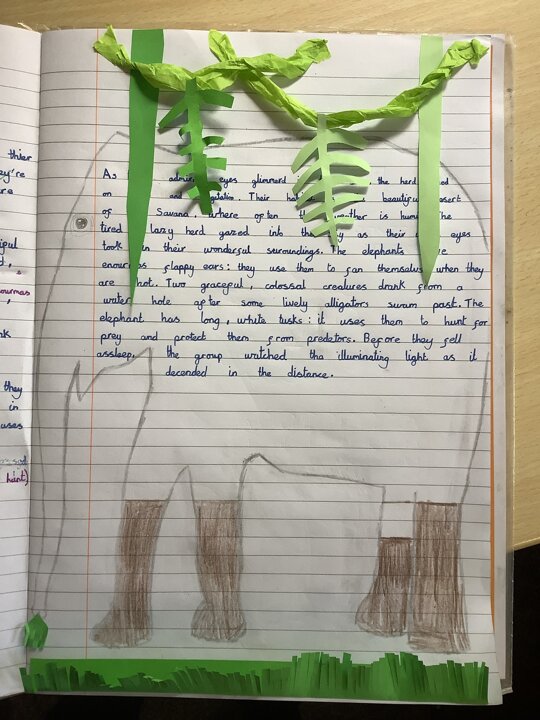 thier
ey're
re
iful
d,
ournmas
nk
they
in
uses
hant)
As admir eyes glimmerd the herd
on and Their beauty desert
of Savana where often the weather is humi The
tired lazy herd gazed into the as their eyes
took in their wonderful surroundings. The elephants
enourmos flappy ears: they use them to fan themselves when they
are hot. Two graceful, colossal creatures drank from a
water hole after some lively alligators swam past. The
elephant has long, white tusks: it uses them to hunt for
prey and protect them from predetors. Before they fell
assleep, the group watched tha illuminating light as it
decended in the distance.